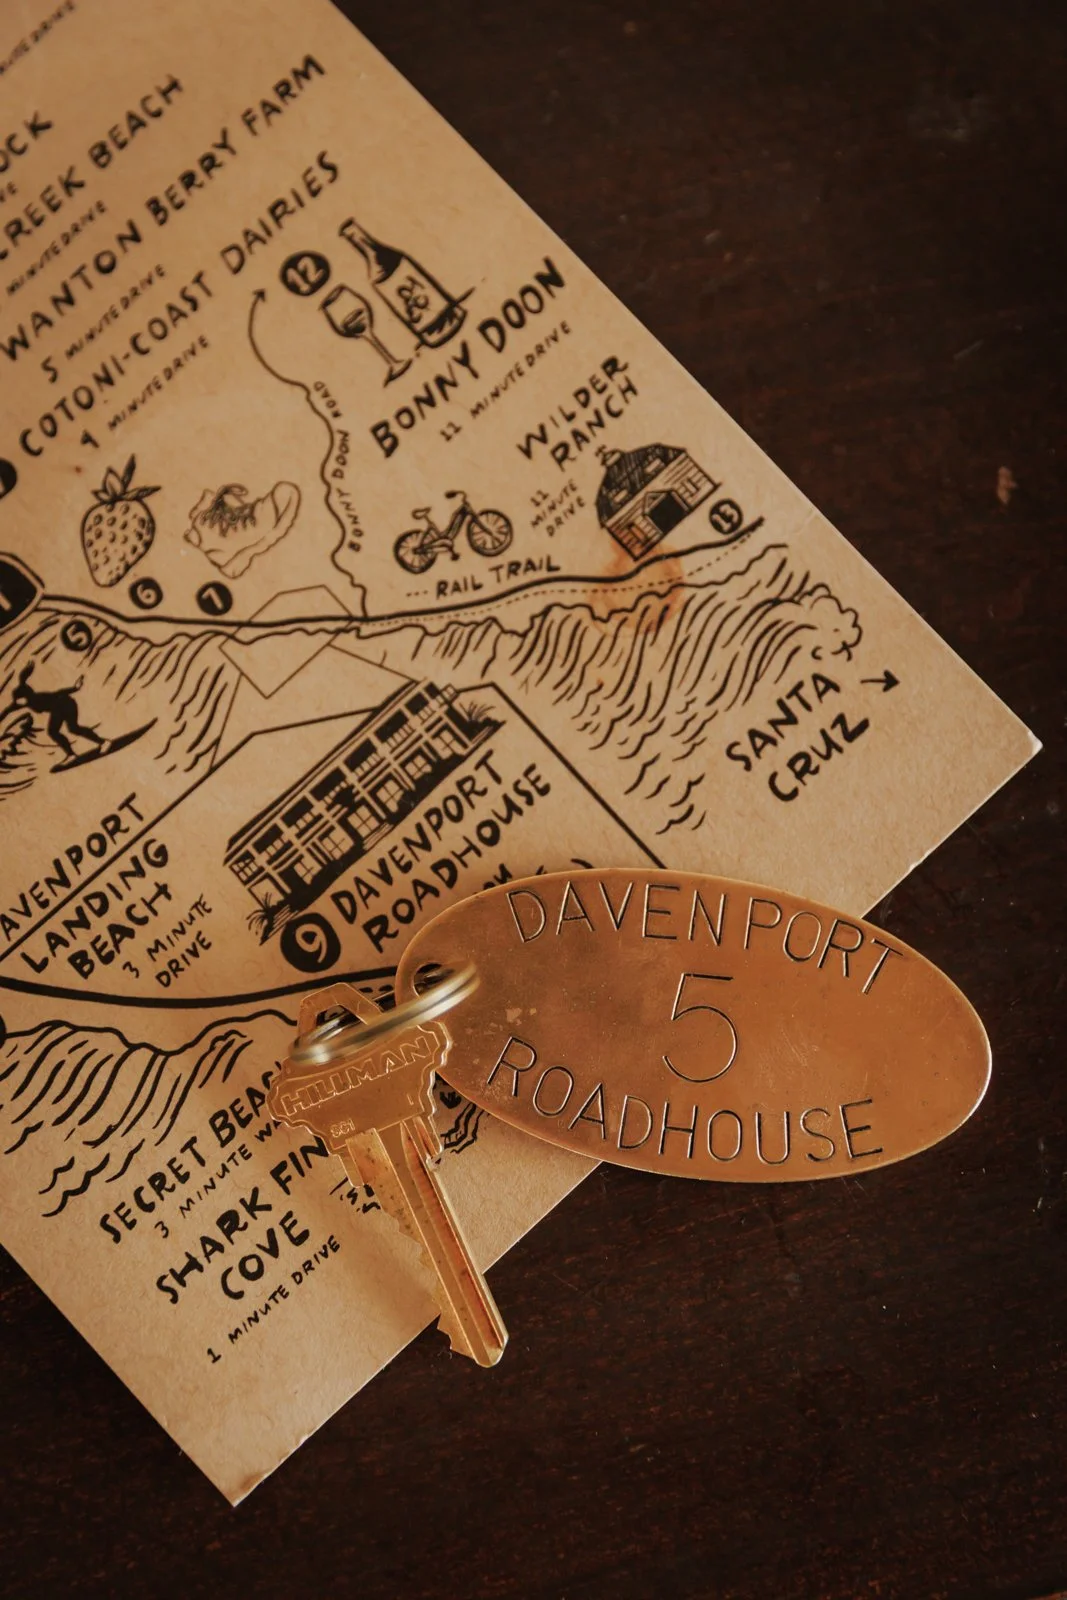 CREEK BEACH
MINUTE DRIVE
WANTON BERRY FARM
5 MINUTE DRIVE
COTONI-COAST DAIRIES
4 MINUTE DRIVE
12
BONNY DOON
11 MINUTE DRIVE
BONNY DOON ROAD
WILDER
RANCH
11
MINUTE
DRIVE
13
RAIL TRAIL
5
6
7
1
SANTA
CRUZ
DAVENPORT
LANDING
BEACH
3 MINUTE
DRIVE
9
DAVENPORT
ROADHOUSE
SECRET BEACH
3 MINUTE
SHARK FIN
COVE
1 MINUTE DRIVE
HILLMAN
SC1
DAVENPORT
5
ROADHOUSE